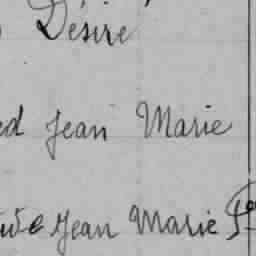 Désiré
ed Jean Marie
Jean Marie